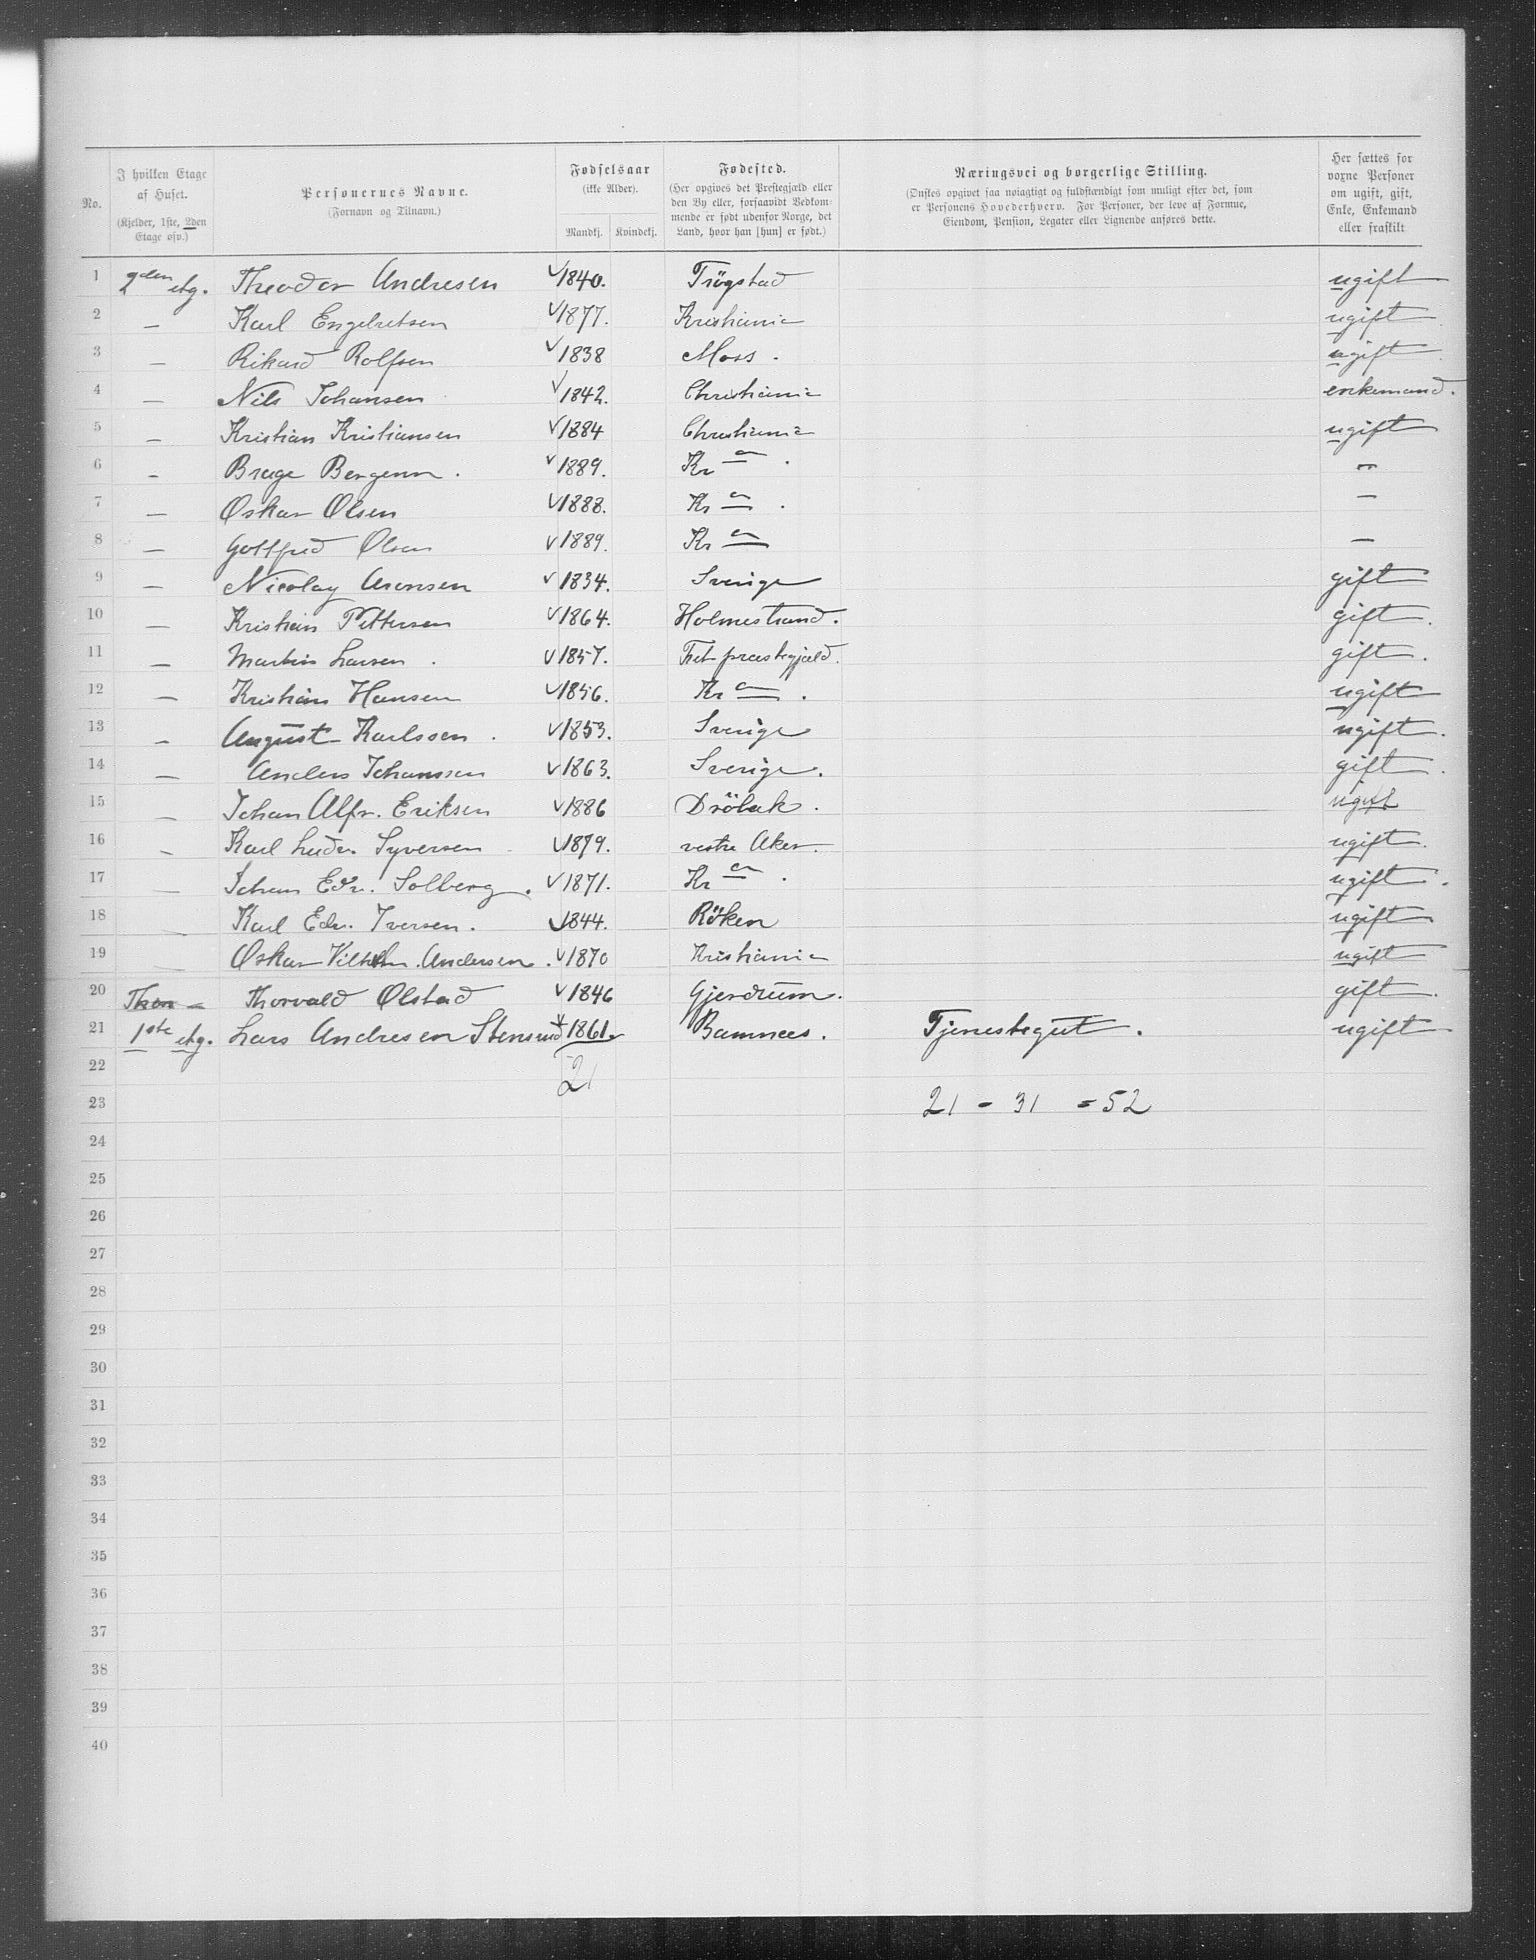 No.
I hvilken Etage af Huset.
(Kjelder, 1ste, 2den Etage osv.)
Personernes Navne.
(Fornavn og Tilnavn.)
Fødselsaar
(ikke Alder).
Mandkj. Kvindekj.
Fødested.
(Her opgives det Prestegjæld eller den By eller, forsaavidt Vedkommende er født udenfor Norge, det Land, hvor han [hun] er født.)
Næringsvei og borgerlige Stilling.
(Ønskes opgivet saa nøiagtigt og fuldstændigt som muligt efter det, som er Personens Hovederhverv. For Personer, der leve af Formue, Eiendom, Pension, Legater eller Lignende anføres dette.
Her sættes for voxne Personer om ugift, gift, Enke, Enkemand eller fraskilt
1 2den etg. Theodor Andresen 1840. Trögstad ugift
2 — Karl Engebretsen 1877. Kristiania ugift
3 — Rikard Rolfsen 1838 Moss. ugift
4 — Nils Johansen 1842. Christiania enkemand.
5 — Kristian Kristiansen 1884 Christiania ugift
6 — Brage Bergenn. 1889. Kr a. —
7 — Oskar Olsen 1888. Kr a. —
8 — Gottfred Olsen 1889. Kr a —
9 — Nicolay Aronsen 1834. Sverige gift
10 — Kristian Pettersen 1864. Holmestrand. gift.
11 — Martin Larsen. 1857. Fet præstegjæld. gift.
12 — Kristian Hansen 1856. Kr a. ugift
13 — August Karlssen. 1853. Sverige ugift.
14 — Anders Johanssen 1863. Sverige. gift.
15 — Johan Alfr. Eriksen 1886 Dröbak. ugift
16 — Karl Ludv. Syversen 1879. vestre Aker. ugift.
17 — Johan Edv. Solberg. 1871. Kr a. ugift.
18 — Karl Edv. Iversen. 1844. Röken ugift
19 — Oskar Vilhelm Andersen. 1870 Kristiania ugift
20 Thor — Thorvald Olstad 1846 Gjerdrum. gift.
21 1ste etg. Lars Andresen Stensrud 1861. Bamnees. Tjenestegut. ugift
22 21
23 21 - 31 = 52
24
25
26
27
28
29
30
31
32
33
34
35
36
37
38
39
40